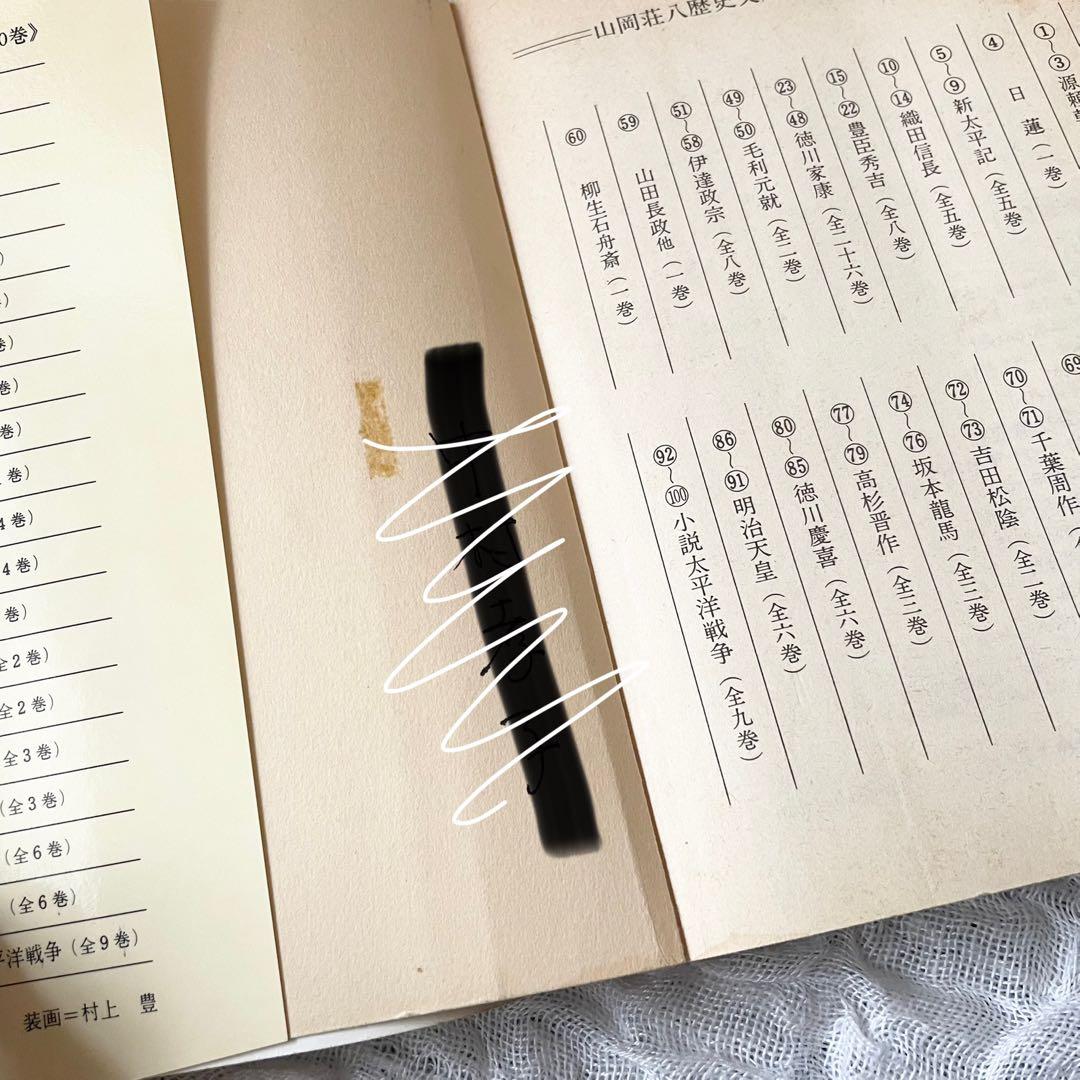 0巻》
巻)
巻)
巻)
巻)
巻)
4巻)
4巻)
巻)
全2巻)
全2巻)
全3巻)
(全3巻)
(全6巻)
(全6巻)
平洋戦争(全9巻)
装画=村上 豊
山岡荘八歴史文
①〜③源頼朝
④ 日蓮(一巻)
⑤〜⑨新太平記(全五巻)
⑩〜⑭織田信長(全五巻)
⑮〜㉒豊臣秀吉(全八巻)
㉓〜㊽徳川家康(全二十六巻)
㊾〜㊿毛利元就(全二巻)
51〜58伊達政宗(全八巻)
59 山田長政他(一巻)
60 柳生石舟斎(一巻)
69
70〜71千葉周作
72〜73吉田松陰(全二巻)
74〜76坂本龍馬(全三巻)
77〜79高杉晋作(全三巻)
80〜85徳川慶喜(全六巻)
86〜91明治天皇(全六巻)
92〜100小説太平洋戦争(全九巻)